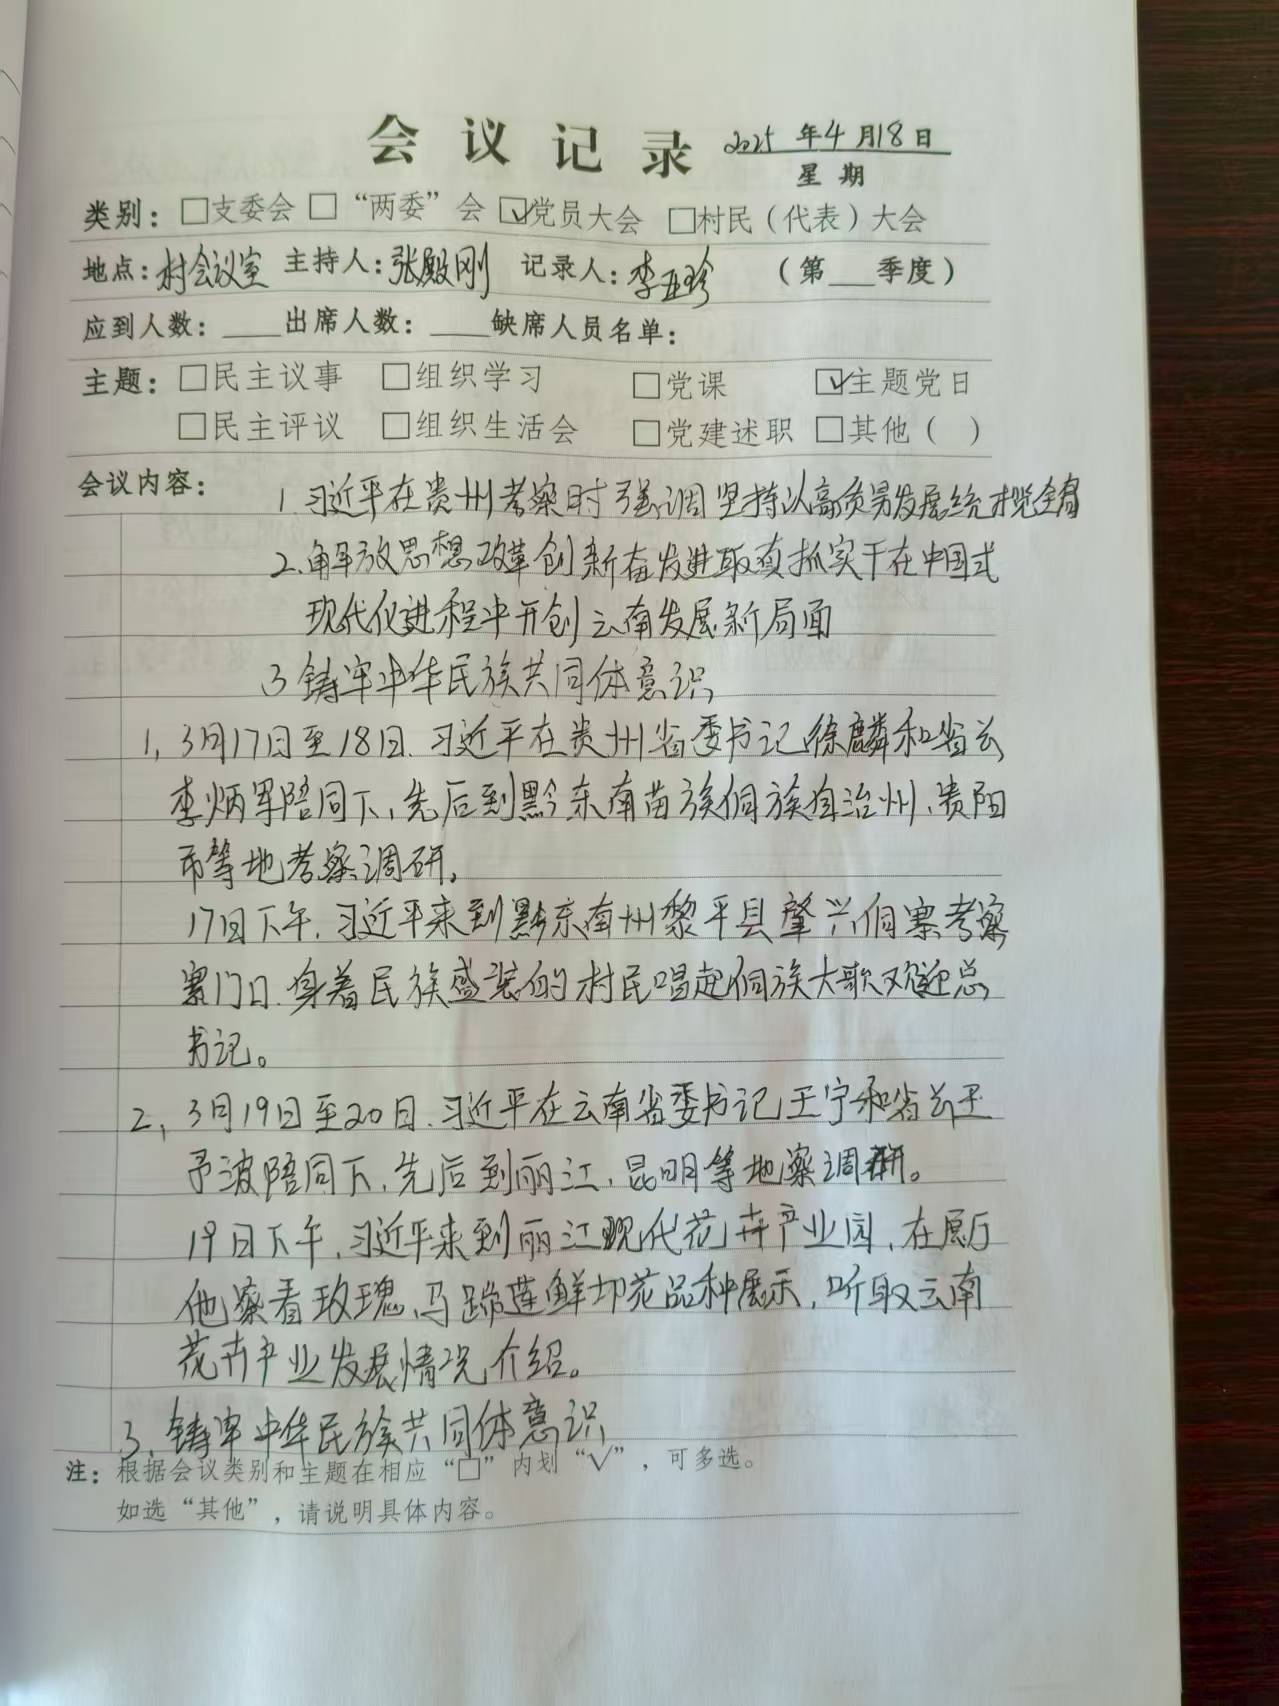 会议记录 2025年4月18日
星期
类别：□支委会 □“两委”会 ☑党员大会 □村民（代表）大会
地点：村会议室 主持人：张殿刚 记录人：李亚珍 （第___季度）
应到人数：____出席人数：____缺席人员名单：
主题：□民主议事 □组织学习 □党课 ☑主题党日
□民主评议 □组织生活会 □党建述职 □其他（ ）
会议内容：
1.习近平在贵州考察时强调坚持以高质量发展统揽全局
2.解放思想改革创新奋发进取真抓实干在中国式
现代化进程中开创云南发展新局面
3 铸牢中华民族共同体意识
1, 3月17日至18日.习近平在贵州省委书记徐麟和省长
李炳军陪同下,先后到黔东南苗族侗族自治州、贵阳
市等地考察调研。
17日下午,习近平来到黔东南州黎平县肇兴侗寨考察
寨门口.身着民族盛装的村民唱起侗族大歌欢迎总
书记。
2, 3月19日至20日.习近平在云南省委书记王宁和省长王
予波陪同下,先后到丽江,昆明等地察调研。
19日下午,习近平来到丽江现代花卉产业园,在展厅
他察看玫瑰、马蹄莲鲜切花品种展示,听取云南
花卉产业发展情况介绍。
3、铸牢中华民族共同体意识
注：根据会议类别和主题在相应“□”内划“√”，可多选。
如选“其他”，请说明具体内容。